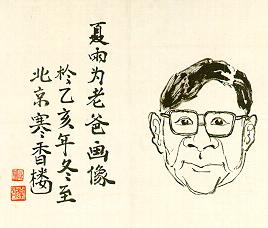 夏雨为老爸画像
於乙亥年冬至
北京寒香楼